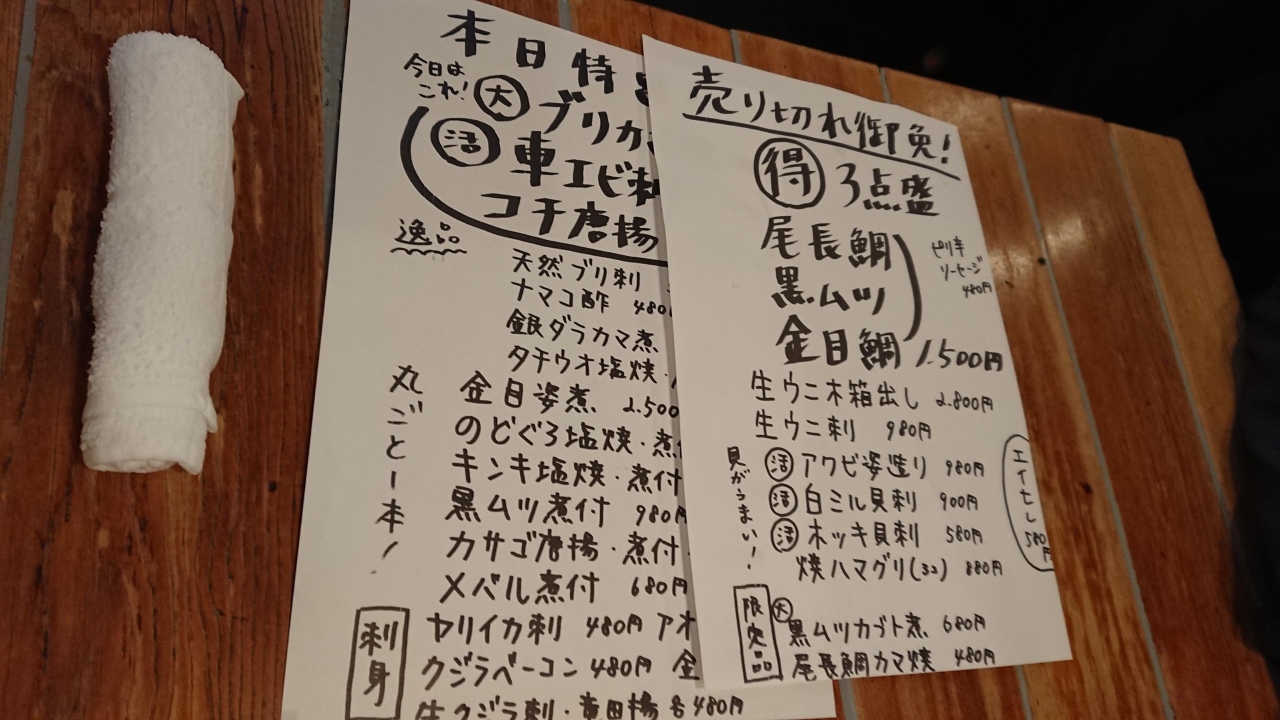 本日特
今日は
これ!
大 ブリカ
活 車エビ刺
コチ唐揚
逸品
天然ブリ刺
ナマコ酢 480
銀ダラカマ煮
タチウオ塩焼・
丸ごと一本!
金目姿煮 2.500
のどぐろ塩焼・煮付
キンキ塩焼・煮付
黒ムツ煮付 980円
カサゴ唐揚・煮付・
メバル煮付 680円
刺身
ヤリイカ刺 480円 アオ
クジラベーコン 480円 金
生クジラ刺・竜田揚 各480円
売り切れ御免!
得 3点盛
尾長鯛
黒ムツ
金目鯛 1.500円
ピリ辛
ソーセージ
480円
生ウニ木箱出し 2.800円
生ウニ刺 980円
貝がうまい!
活 アワビ姿造り 980円
活 白ミル貝刺 900円
活 ホッキ貝刺 580円
焼ハマグリ(3コ) 880円
エイヒレ
580円
限定品
大 黒ムツカブト煮 680円
尾長鯛カマ焼 480円